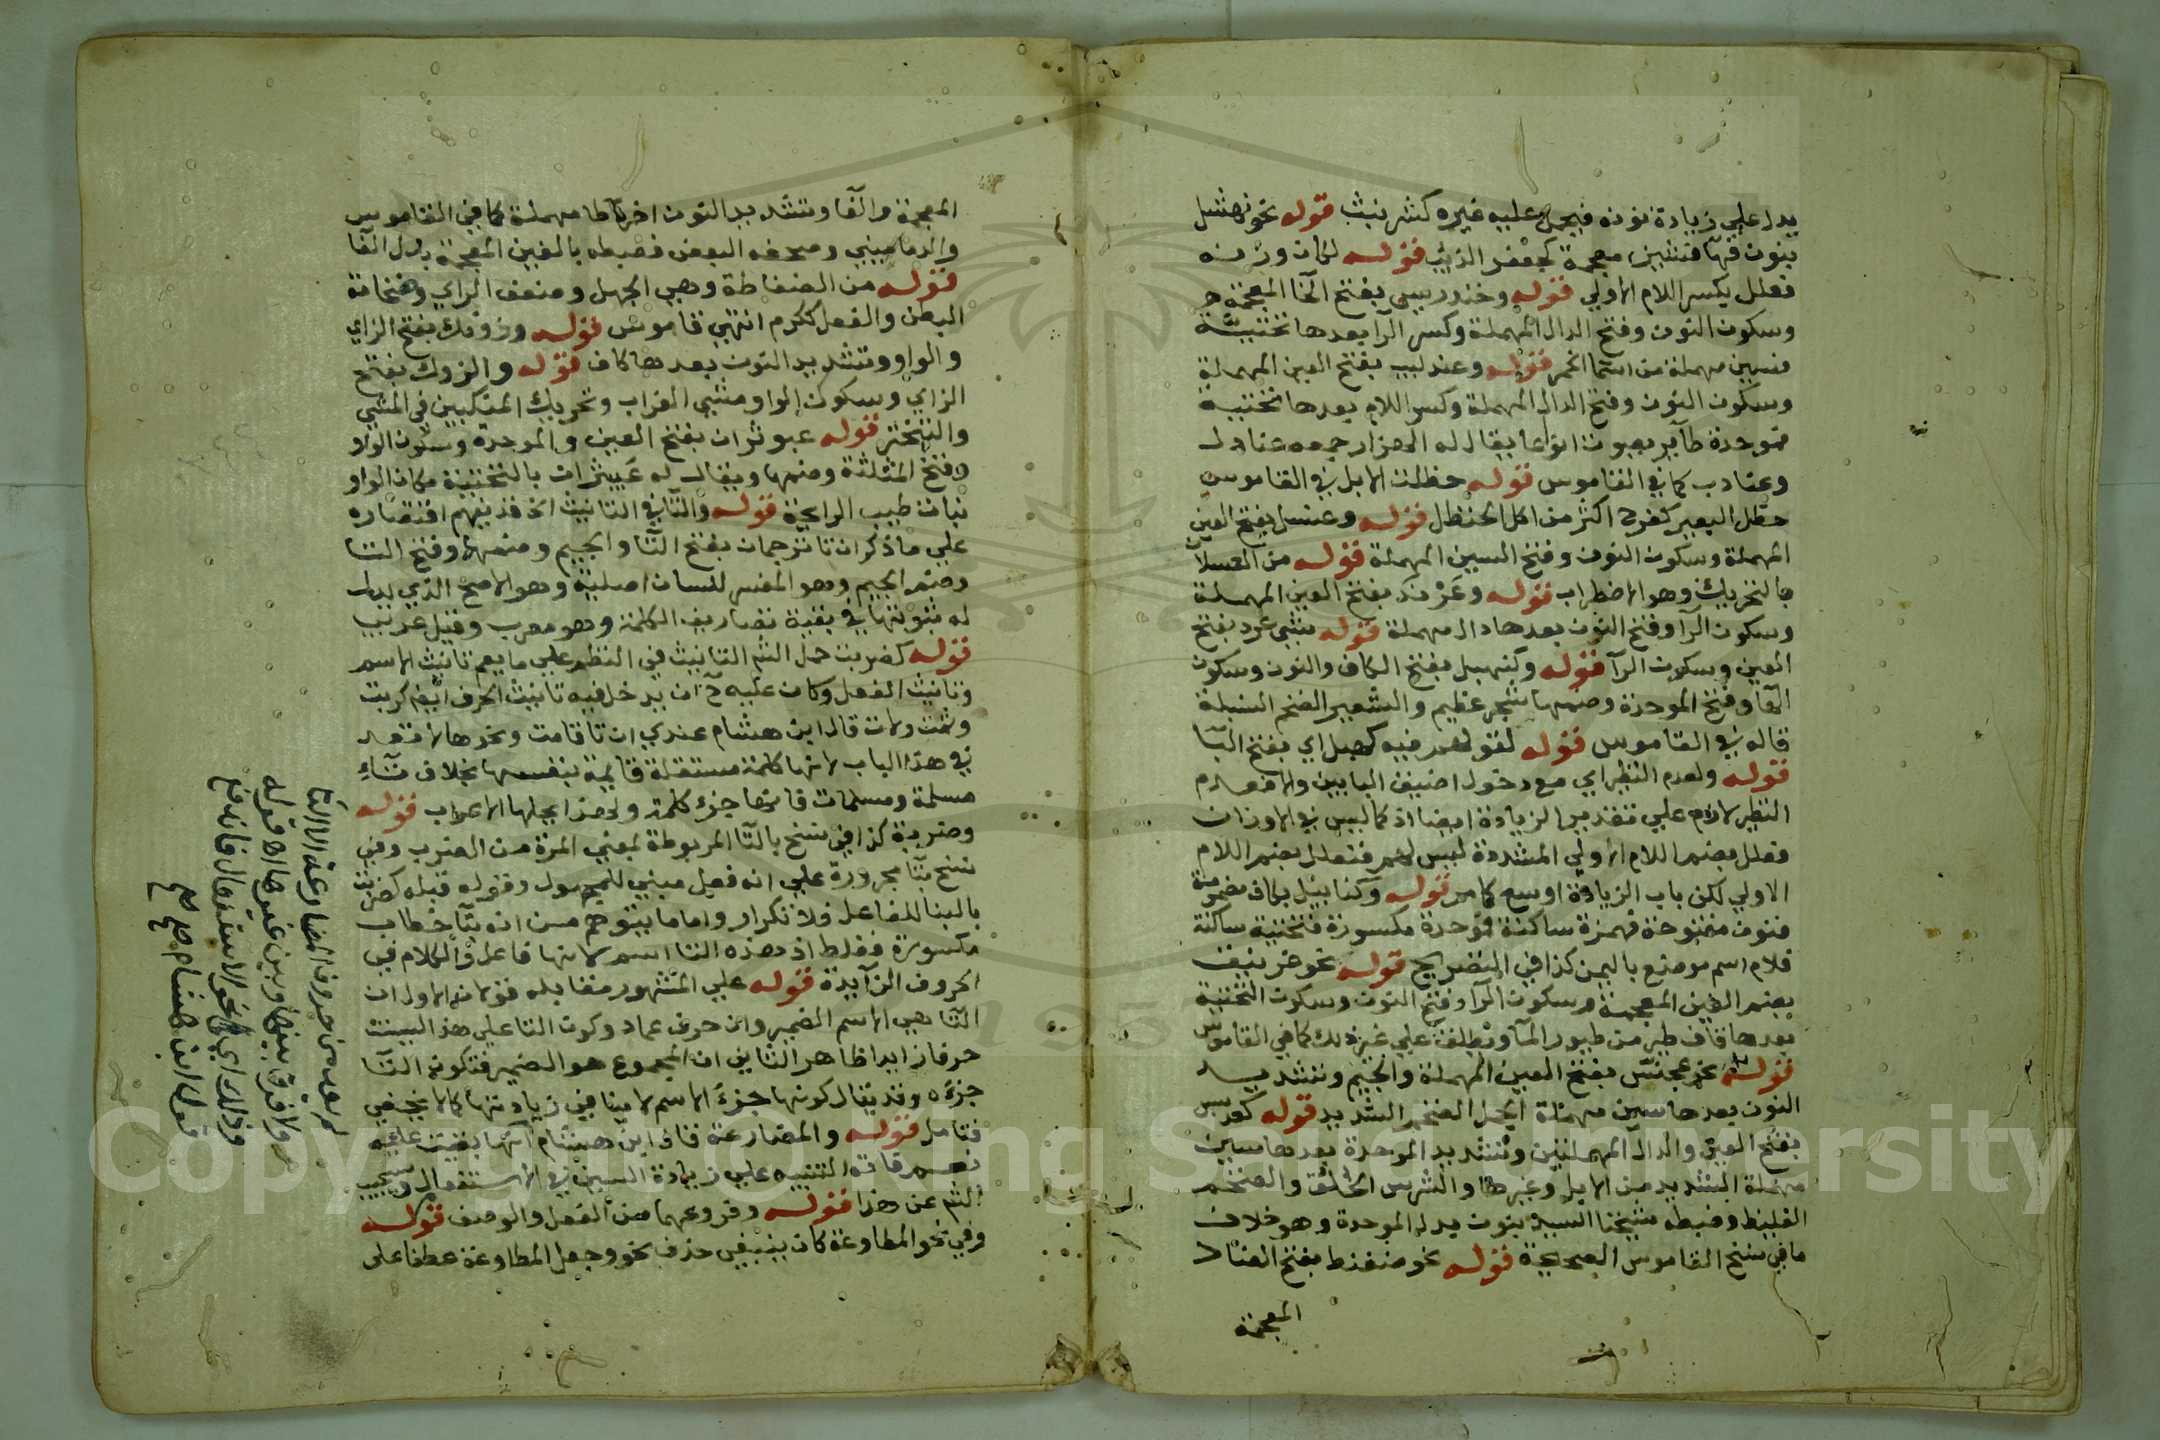 يدل علي زيادة نونه فيحمل عليه غيره كشرنبث قوله نحو نهشل
بنون فهآ فشين معجمة كجعفر الذئب قوله لكان وزنه
فعلل بكسر اللام الاولي قوله وخندريس بفتح الخآ المعجمة
وسكون النون وفتح الدال المهملة وكسر الرآ بعدها تحتيتة
فسين مهملة من اسمآ الخمر قوله وعندليب بفتح العين المهملة
وسكون النون وفتح الدال المهملة وكسر اللام بعدها تحتية
فموحدة طآير يصوت انواعا يقال له الهزار جمعه عنادل
وعنادب كما في القاموس قوله حظلت الابل في القاموس
حظل البعير كفرح اكثر من اكل الحنظل قوله وعنسل بفتح العين
المهملة وسكون النون وفتح السين المهملة قوله من العسلان
بالتحريك وهو الاضطراب قوله وعرند بفتح العين المهملة
وسكون الرآ وفتح النون بعدها دال مهملة قوله شي عرد بفتح
العين وسكون الرآ قوله وكنهبل بفتح الكاف والنون وسكون
الهآ وفتح الموحدة وضمها شجر عظيم والشعير الضخم السنبلة
قاله في القاموس قوله لقولهم فيه كهبل اي بفتح البآ
قوله ولعدم النظير اي مع دخول اضيق البابين والا فعدم
النظير لازم علي تقدير الزيادة ايضا اذ كما ليس في الاوزان
فعلل بضم اللام الاولي المشددة ليس لهم فنعلل بضم اللام
الاولي لكن باب الزيادة اوسع كما مر قوله وكنابيل بكاف مضمومة
فنون مفتوحة فهمزة ساكنة فموحدة مكسورة فتحتية ساكنة
فلام اسم موضع باليمن كذا في التصريح قوله نحو غرنيق
بضم الغين المعجمة وسكون الرآ وفتح النون وسكون التحتية
بعدها قاف طير من طيور المآ ويطلق علي غير ذلك كما في القاموس
قوله نحو عجنس بفتح العين المهملة والجيم وتشديد
النون بعدها سين مهملة الجمل الضخم الشديد قوله كعدبس
بفتح العين والدال المهملتين وتشديد الموحدة بعدها سين
مهملة الشديد من الابل وغيرها والشرس الخلق والضخم
الغليظ وضبطه شيخنا السيد بنون بدل الموحدة وهو خلاف
ما في نسخ القاموس الصحيحة قوله نحو ضفنط بفتح الضاد
المعجمة
المعجمة والفآ وتشديد النون اخره طآ مهملة كما في القاموس
والدماميني وصحفه البعض فضبطه بالغين المعجمة بدل الفآ
قوله من الضفاطة وهي الجهل وضعف الراي وضخامة
البطن والفعل ككرم انتهي قاموس قوله وزونك بفتح الزاي
والواو وتشديد النون بعدها كاف قوله والزوك بفتح
الزاي وسكون الواو مشي الغراب وتحريك المنكبين في المشي
والتبختر قوله عبوثران بفتح العين والموحدة وسكون الواو
وفتح المثلثة وضمها ويقال له عبيثران بالتحتية مكان الواو
نبات طيب الرايحة قوله والتآ في التانيث الخ قد يفهم اقتصاره
علي ما ذكر ان تا ترجمان بفتح التآ والجيم وضمهما وفتح التآ
وضم الجيم وهو المفسر للسان اصلية وهو الاصح الذي يدل
له ثبوتها في بقية تصاريف الكلمة وهو معرب وقيل عربي
قوله كضربت حمل الشم التانيث في النظم علي ما يعم تانيث الاسم
وتانيث الفعل وكان عليه ح ان يدخل فيه تانيث الحرف ايضا كربت
وثمت ولات قال ابن هشام عندي ان تا قامت ونحوها لا تعد
في هذا الباب لانها كلمة مستقلة قايمة بنفسها بخلاف تآء
مسلمة ومسلمات فانها جزء كلمة ولهذا يحلها الاعراب قوله
وضربة كذا في نسخ بالتآ المربوطة لمعني المرة من الضرب وفي
نسخ بتآ مجرورة علي انه فعل مبني للمجهول وقوله قبله كضربت
بالبنا للفاعل فلا تكرار واما ما يتوهم من انه بتآ خطاب
مكسورة فغلط اذ هذه التا اسم لانها فاعل والكلام في
الحروف الزآيدة قوله علي المشهور مقابله قولان الاول ان
التآ هي الاسم الضمير وان حرف عماد وكون التا علي هذا ليست
حرفا زايدا ظاهر الثاني ان المجموع هو الضمير فتكون التآ
جزءه وقد يقال كونها جزء الاسم لا ينافي زيادتها كما لا يخفي
فتامل قوله والمضارعة قال ابن هشام انها بقيت عليه
نعم فاته التنبيه علي زيادة السين في الاستفعال وسيجيب
الشم عن هذا قوله وفروعهما من الفعل والوصف قوله
وفي نحو المطاوعة كان ينبغي حذف نحو وجعل المطاوعة عطفا علي
لم يعد من حروف المضارعة الا التا
ولا فرق بينها وبين غيرها اه قوله